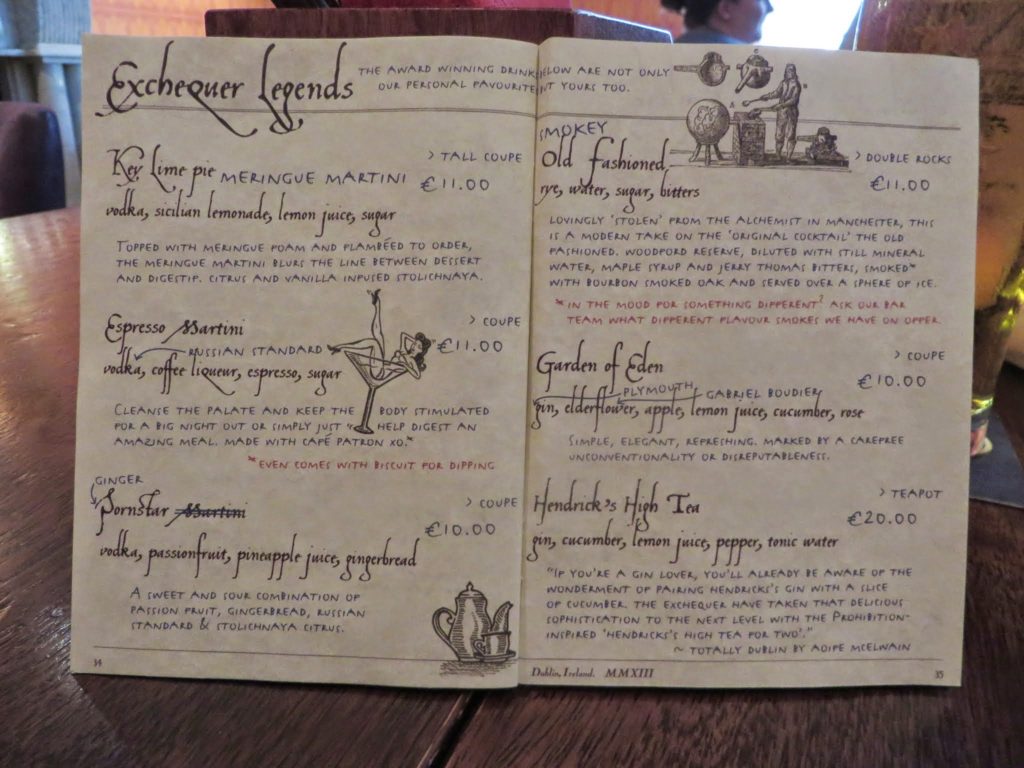 Exchequer Legends
THE AWARD WINNING DRINKS BELOW ARE NOT ONLY
OUR PERSONAL FAVOURITE BUT YOURS TOO.
Key Lime pie MERINGUE MARTINI
> TALL COUPE
€11.00
vodka, sicilian lemonade, lemon juice, sugar
TOPPED WITH MERINGUE FOAM AND FLAMBÉED TO ORDER,
THE MERINGUE MARTINI BLURS THE LINE BETWEEN DESSERT
AND DIGESTIF. CITRUS AND VANILLA INFUSED STOLICHNAYA.
Espresso Martini
> COUPE
€11.00
RUSSIAN STANDARD
vodka, coffee liqueur, espresso, sugar
CLEANSE THE PALATE AND KEEP THE BODY STIMULATED
FOR A BIG NIGHT OUT OR SIMPLY JUST HELP DIGEST AN
AMAZING MEAL. MADE WITH CAFÉ PATRON XO.*
*EVEN COMES WITH BISCUIT FOR DIPPING
GINGER
Pornstar Martini
> COUPE
€10.00
vodka, passionfruit, pineapple juice, gingerbread
A SWEET AND SOUR COMBINATION OF
PASSION FRUIT, GINGERBREAD, RUSSIAN
STANDARD & STOLICHNAYA CITRUS.
34
SMOKEY
Old Fashioned
> DOUBLE ROCKS
€11.00
rye, water, sugar, bitters
LOVINGLY 'STOLEN' FROM THE ALCHEMIST IN MANCHESTER, THIS
IS A MODERN TAKE ON THE 'ORIGINAL COCKTAIL' THE OLD
FASHIONED. WOODFORD RESERVE, DILUTED WITH STILL MINERAL
WATER, MAPLE SYRUP AND JERRY THOMAS BITTERS, SMOKED*
WITH BOURBON SMOKED OAK AND SERVED OVER A SPHERE OF ICE.
*IN THE MOOD FOR SOMETHING DIFFERENT? ASK OUR BAR
TEAM WHAT DIFFERENT FLAVOUR SMOKES WE HAVE ON OFFER.
Garden of Eden
> COUPE
€10.00
PLYMOUTH GABRIEL BOUDIER
gin, elderflower, apple, lemon juice, cucumber, rose
SIMPLE, ELEGANT, REFRESHING. MARKED BY A CAREFREE
UNCONVENTIONALITY OR DISREPUTABLENESS.
Hendrick's High Tea
> TEAPOT
€20.00
gin, cucumber, lemon juice, pepper, tonic water
"IF YOU'RE A GIN LOVER, YOU'LL ALREADY BE AWARE OF THE
WONDERMENT OF PAIRING HENDRICKS'S GIN WITH A SLICE
OF CUCUMBER. THE EXCHEQUER HAVE TAKEN THAT DELICIOUS
SOPHISTICATION TO THE NEXT LEVEL WITH THE PROHIBITION-
INSPIRED 'HENDRICKS'S HIGH TEA FOR TWO'."
~ TOTALLY DUBLIN BY AOIFE MCELWAIN
Dublin, Ireland. MMXIII
35